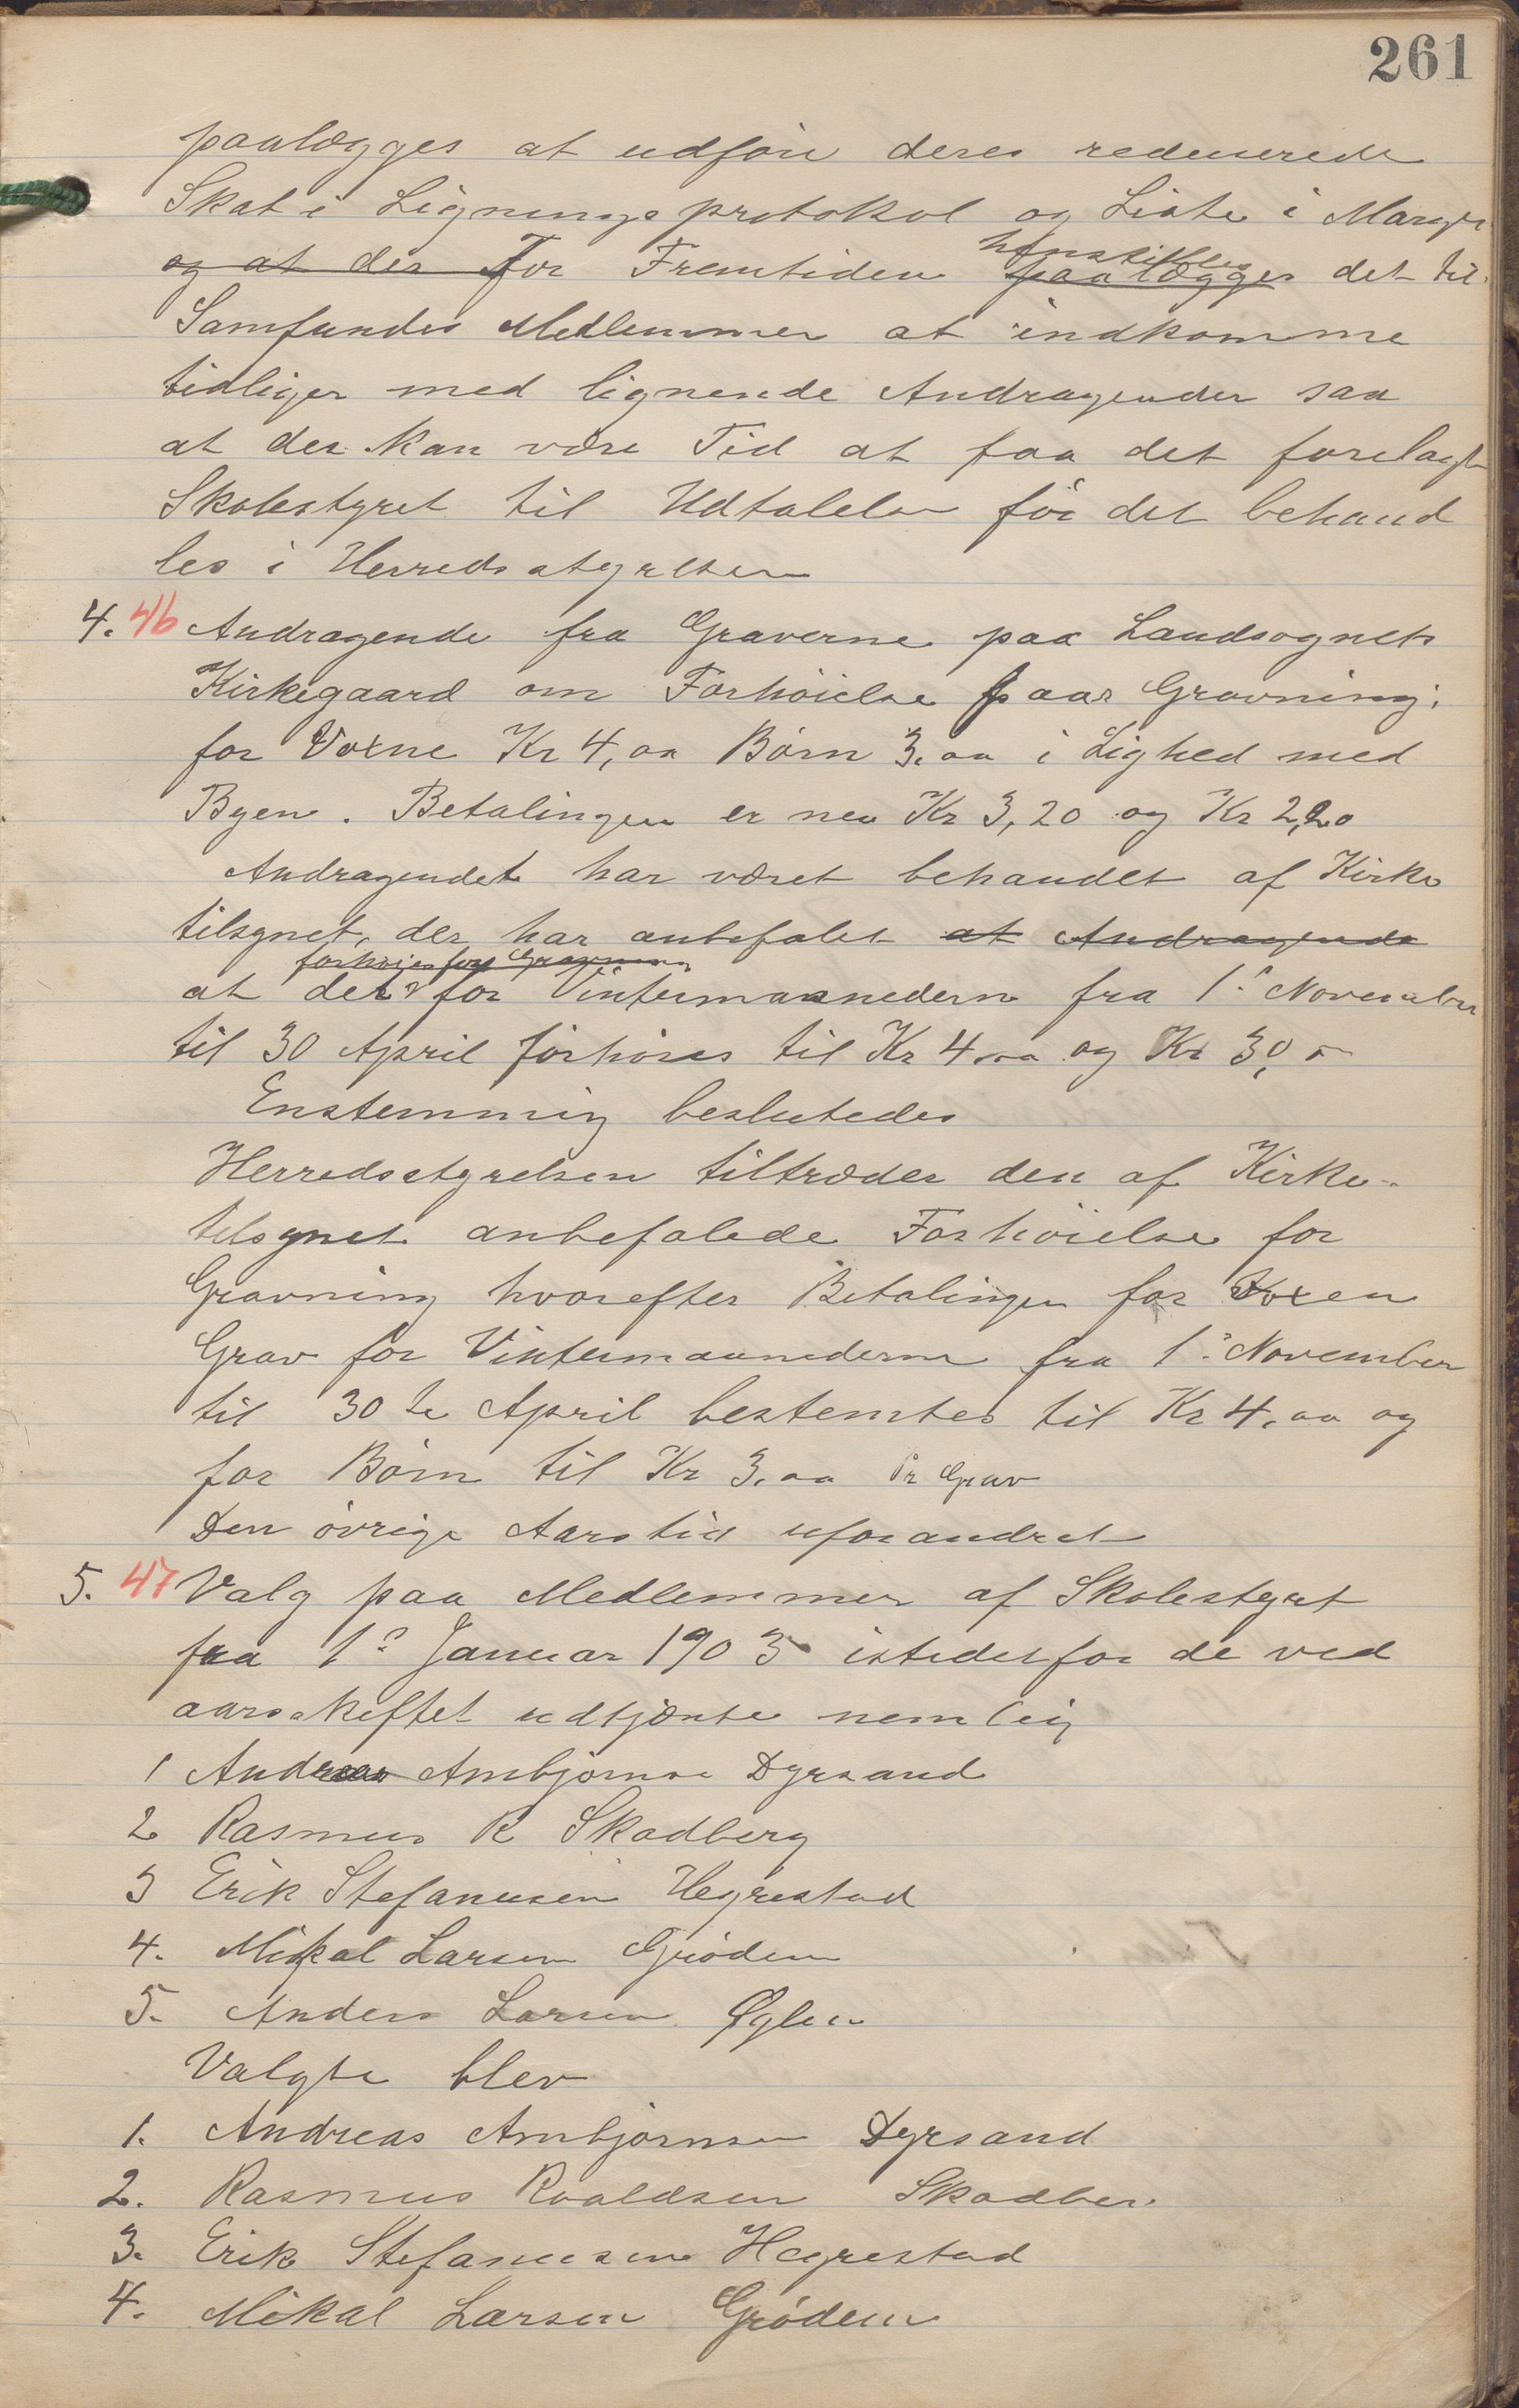 261
paalægges at udføre deres reducerede
Skat i Ligningsprotokol og Liste i Margen
og at der For Fremtiden henstilles paalægges det til
Samfundes Medlemmer at indkomme
tidliger med lignende Andragender saa
at der kan være Tid at faa det forelagt
Skolestyret til Udtalelse før det behand
les i Herredsstyrelsen
4. 46 Andragende fra Graverne paa Landsognets
Kirkegaard om Forhøielse paa Gravning.
for Voxne Kr 4,00 Børn 3.00 i Lighed med
Byen. Betalingen er nu Kr 3,20 og Kr 2,20
Andragendet har været behandlet af Kirke
tilsynet, der har anbefalet at Andragende
forhøies for Gravning
at det for Vintermaanederne fra 1ste November
til 30 April forhøies til Kr 4.00 og Kr 3,00
Enstemmig beslutedes
Herredsstyrelsen tiltræder den af Kirke-
tilsynet anbefalede Forhøielse for
Gravning hvorefter Betalingen for Voxen
Grav for Vintermaanederne fra 1ste November
til 30te April bestemtes til Kr 4.00 og
for Børn til Kr 3.00 Pr Grav
Den øvrige Aarstid uforandret
5. 47 Valg paa Medlemmer af Skolestyret
fra 1ste Januar 1903 istedetfor de ved
aarsskiftet udtjænte nemlig
1 Andreas Ambjørnse Dyrsand
2 Rasmus R Skadberg
3 Erik Stefanusen Hegrestad
4. Mikal Larsen Grødem
5. Anders Larsen Øglen
Valgte blev
1. Andreas Ambjørnsen Dyrsand
2. Rasmus Roaldsen Skadber.
3. Erik Stefanusen Hegrestad
4. Mikal Larsen Grødem